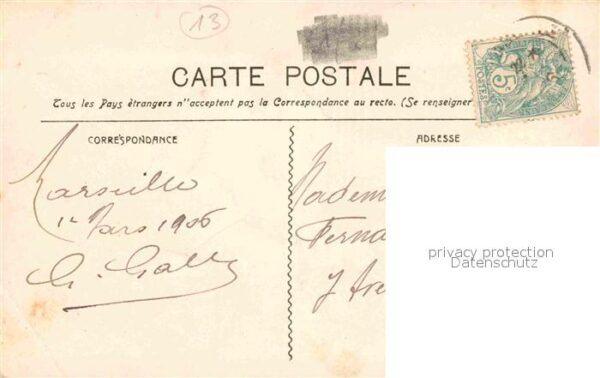 13
CARTE POSTALE
Tous les Pays étrangers n'acceptent pas la Correspondance au recto. (Se renseigner
CORRESPONDANCE
ADRESSE
Marseille
1r Mars 1906
Madem
Ferna
7
privacy protection
Datenschutz
5